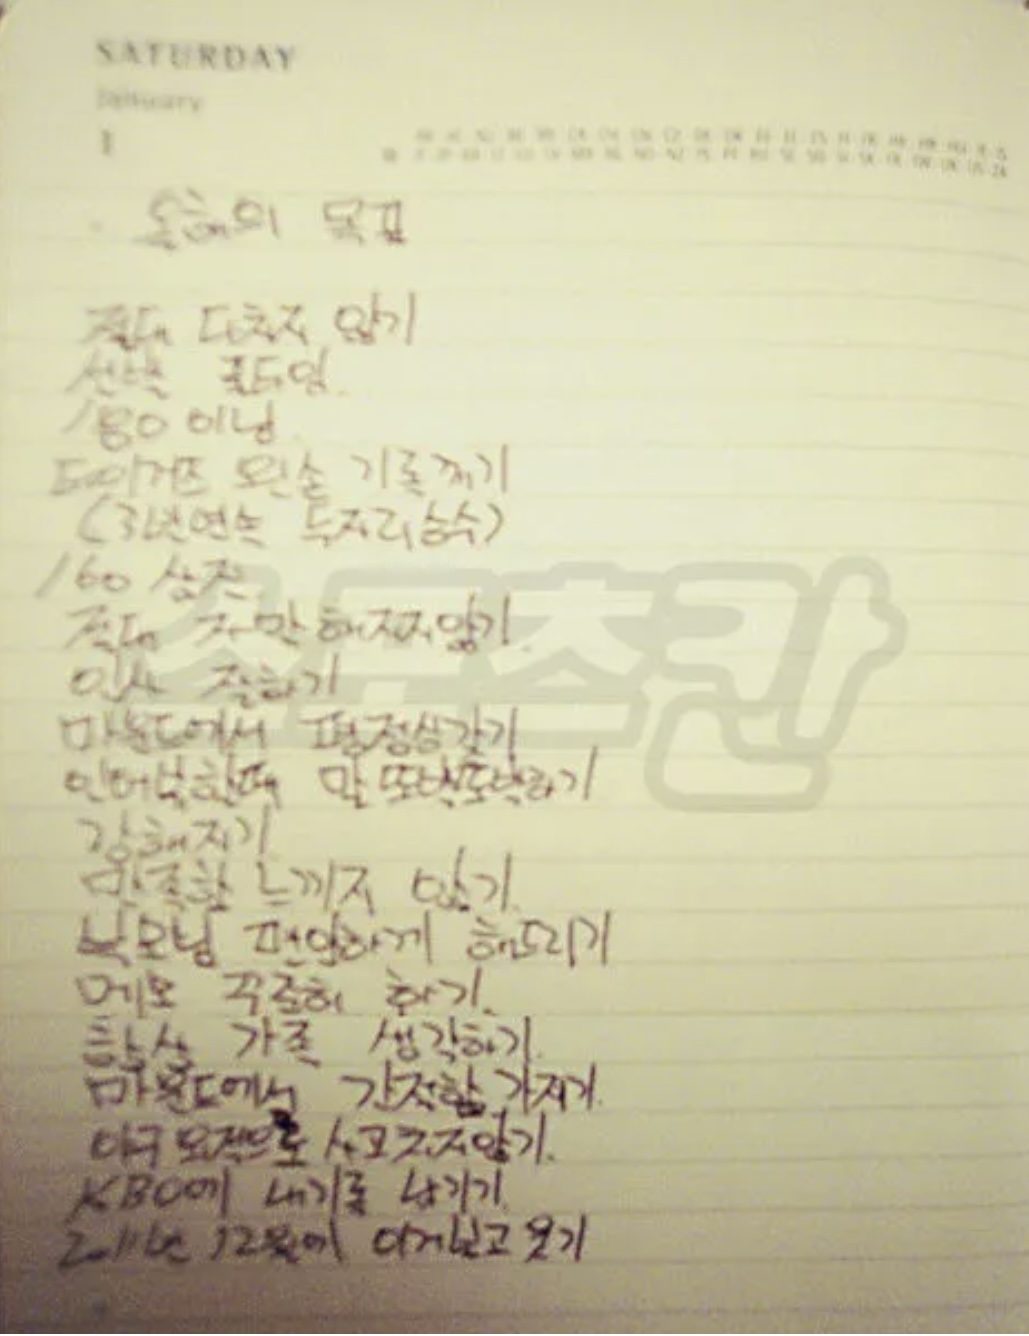 SATURDAY
January
1
올해의 목표
절대 다치지 않기
선발 풀타임.
180이닝.
타이거즈 왼손 기록깨기
(3년연속 두자리승수)
160 삼진
절대 자만해지지않기.
인사 잘하기
마운드에서 평정심갖기
인터뷰할때 말 또박또박하기
강해지기.
만족함 느끼지 않기.
부모님 편안하게 해드리기
메모 꾸준히 하기.
항상 가족 생각하기.
마운드에서 간절함 가지기.
야구 외적으로 사고치지않기.
KBO에 내기록 남기기.
2011년 12월에 이거보고 웃기
스포츠칸